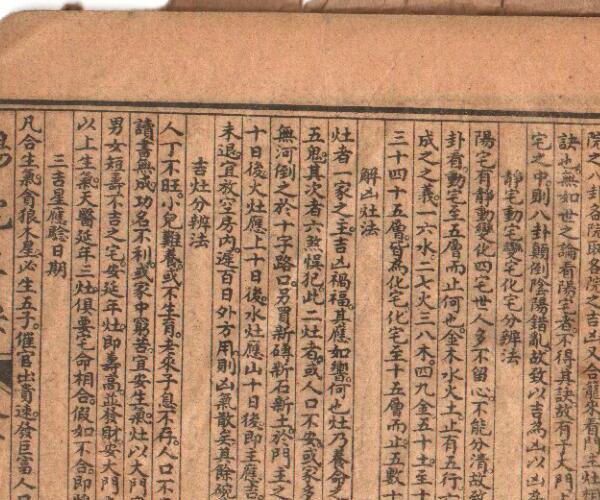 院之八卦各院因各院之吉凶又合龍來看門主灶
訣也無如世之論看陽宅者不得其訣故有干大門
宅之中則八卦顛倒陰陽錯亂故致以吉為凶以凶
靜宅動宅變宅化宅分辨法
陽宅有靜動變化四宅世人多不留心不能分清故
卦看動宅至五層而止何也金木水火土止有五行
成之之義一六水二七火三八木四九金五十土至十
三十四十五層皆為化宅化宅至十五層而止五數十
解凶灶法
灶者一家之主吉凶禍福其應如響何也灶乃養命之
五鬼其次者六煞悞犯此二灶者或人口不安或家多
無河倒之於十字路口另買新磚新石新土於門主之
十日後火灶應上十日後水灶應山十日後即主應吉
未退宜放空房內遲百日外方用則凶氣散矣其餘碗
吉灶分辨法
人丁不旺小兒難養或不生育老來子息不存人口不
讀書無成功名不利或家中窮苦宜安生氣灶以大門
男女短壽不吉之宅安延年灶即壽高並發財安大門
以上生氣天醫延年三灶俱要宅命相合假如不合即
三吉星應驗日期
凡合生氣貪狼木星必生五子催官出貴速發巨富人口